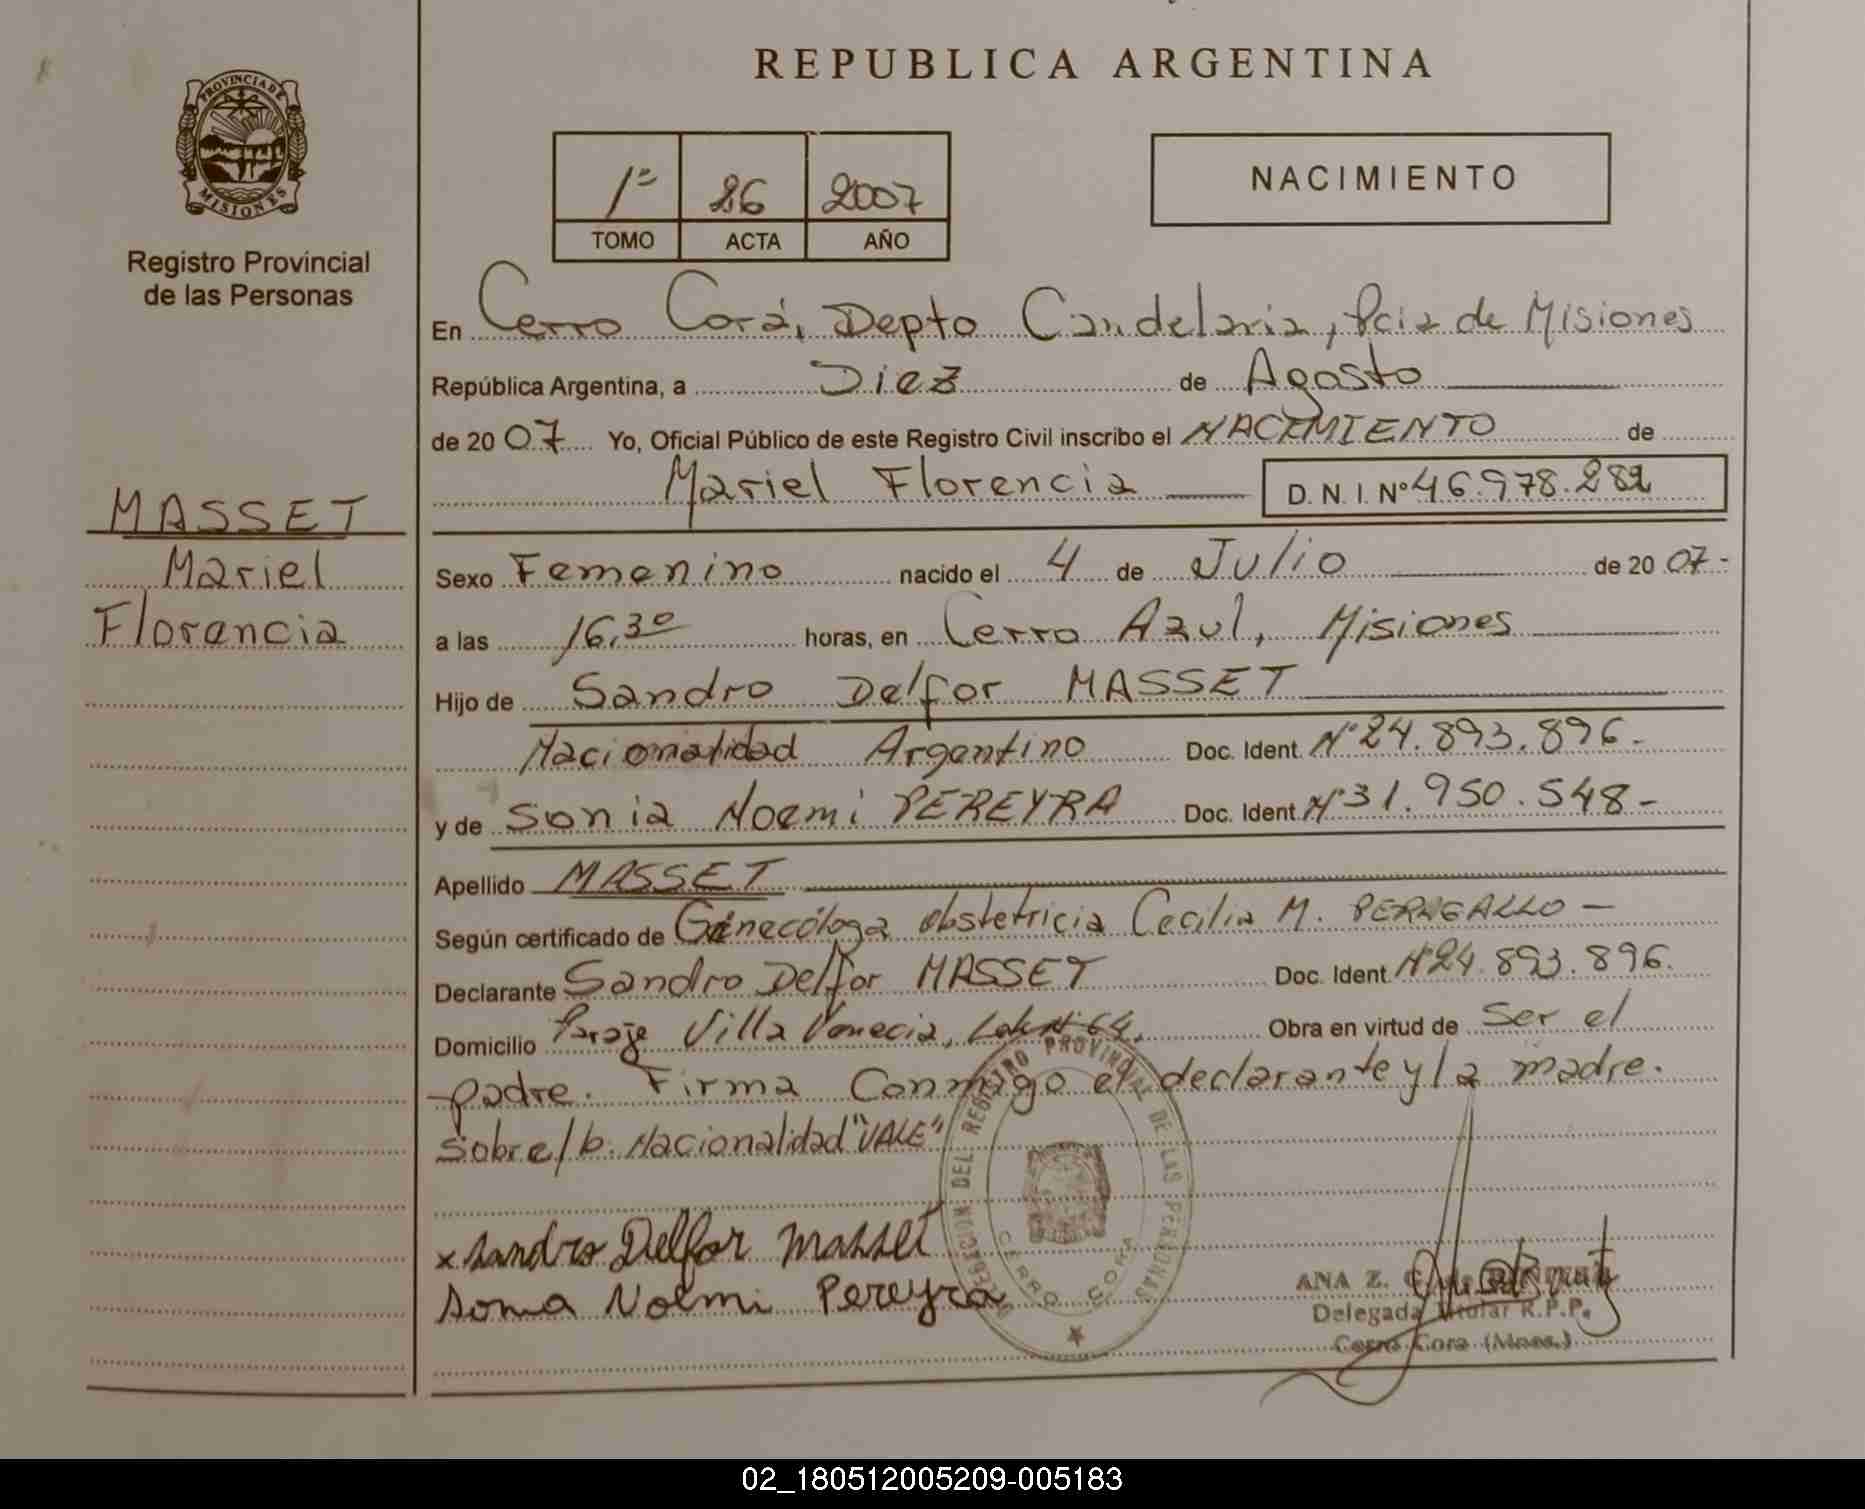 REPUBLICA ARGENTINA
PROVINCIA DE
MISIONES
Registro Provincial
de las Personas
1º 26 2007
TOMO ACTA AÑO
NACIMIENTO
En Cerro Corá, Depto Candelaria, Pcia de Misiones
República Argentina, a Diez de Agosto
de 2007 Yo, Oficial Público de este Registro Civil inscribo el NACIMIENTO de
Mariel Florencia D.N.I. Nº 46.978.282
MASSET
Mariel
Florencia
Sexo Femenino nacido el 4 de Julio de 2007-
a las 16,30 horas, en Cerro Azul, Misiones
Hijo de Sandro Delfor MASSET
Nacionalidad Argentino Doc. Ident. Nº 24.893.896-
y de Sonia Noemi PEREYRA Doc. Ident. Nº 31.950.548-
Apellido MASSET
Según certificado de Ginecóloga obstetricia Cecilia M. PERAGALLO -
Declarante Sandro Delfor MASSET Doc. Ident. Nº 24.893.896.
Domicilio Paraje Villa Venecia, Lote Nº 64, Obra en virtud de Ser el
padre. Firma Conmigo el declarante y la madre.
Sobre/b. Nacionalidad "VALE"
DELEGACION DEL REGISTRO PROVINCIAL DE LAS PERSONAS
CERRO CORA
x Sandro Delfor Masset
Sonia Noemi Pereyra
ANA Z.
Delegada Titular R.P.P.
Cerro Cora (Mnes.)
02_180512005209-005183